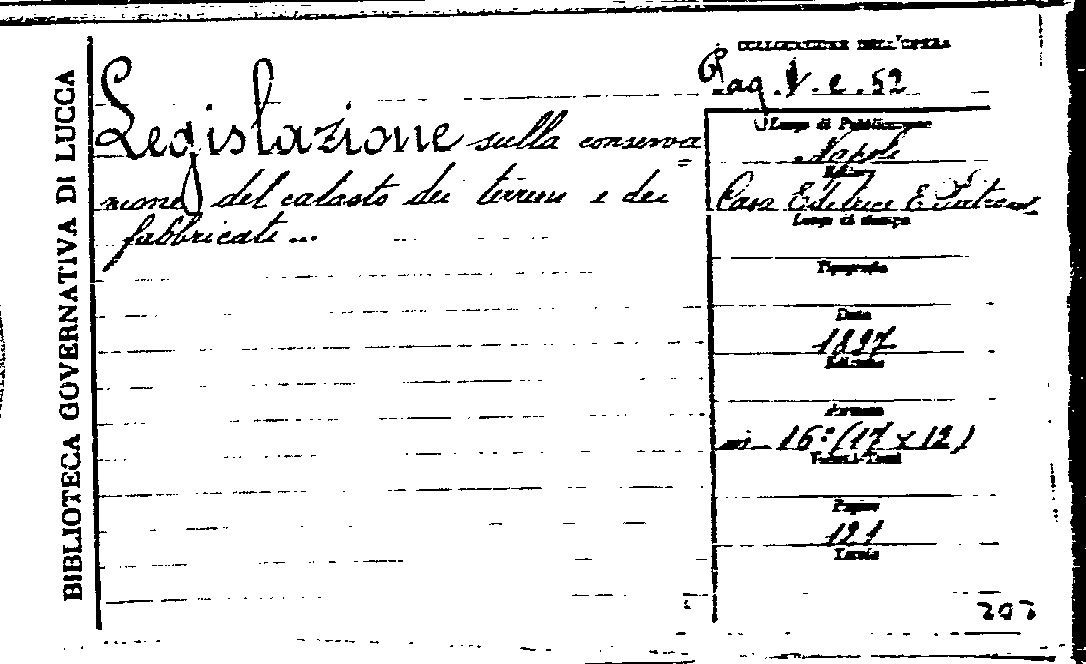 BIBLIOTECA GOVERNATIVA DI LUCCA
COLLOCAZIONE DELL'OPERA
Pag. V. e. 52
Legislazione sulla conserva=
zione del catasto dei terreni e dei
fabbricati...
Luogo di Pubblicazione
Napoli
Editore
Casa Editrice E. Pietrocola
Luogo di stampa
Tipografia
Data
1897
Edizione
Formato
in 16º (17 x 12)
Volumi-Tomi
Pagine
121
Tavole